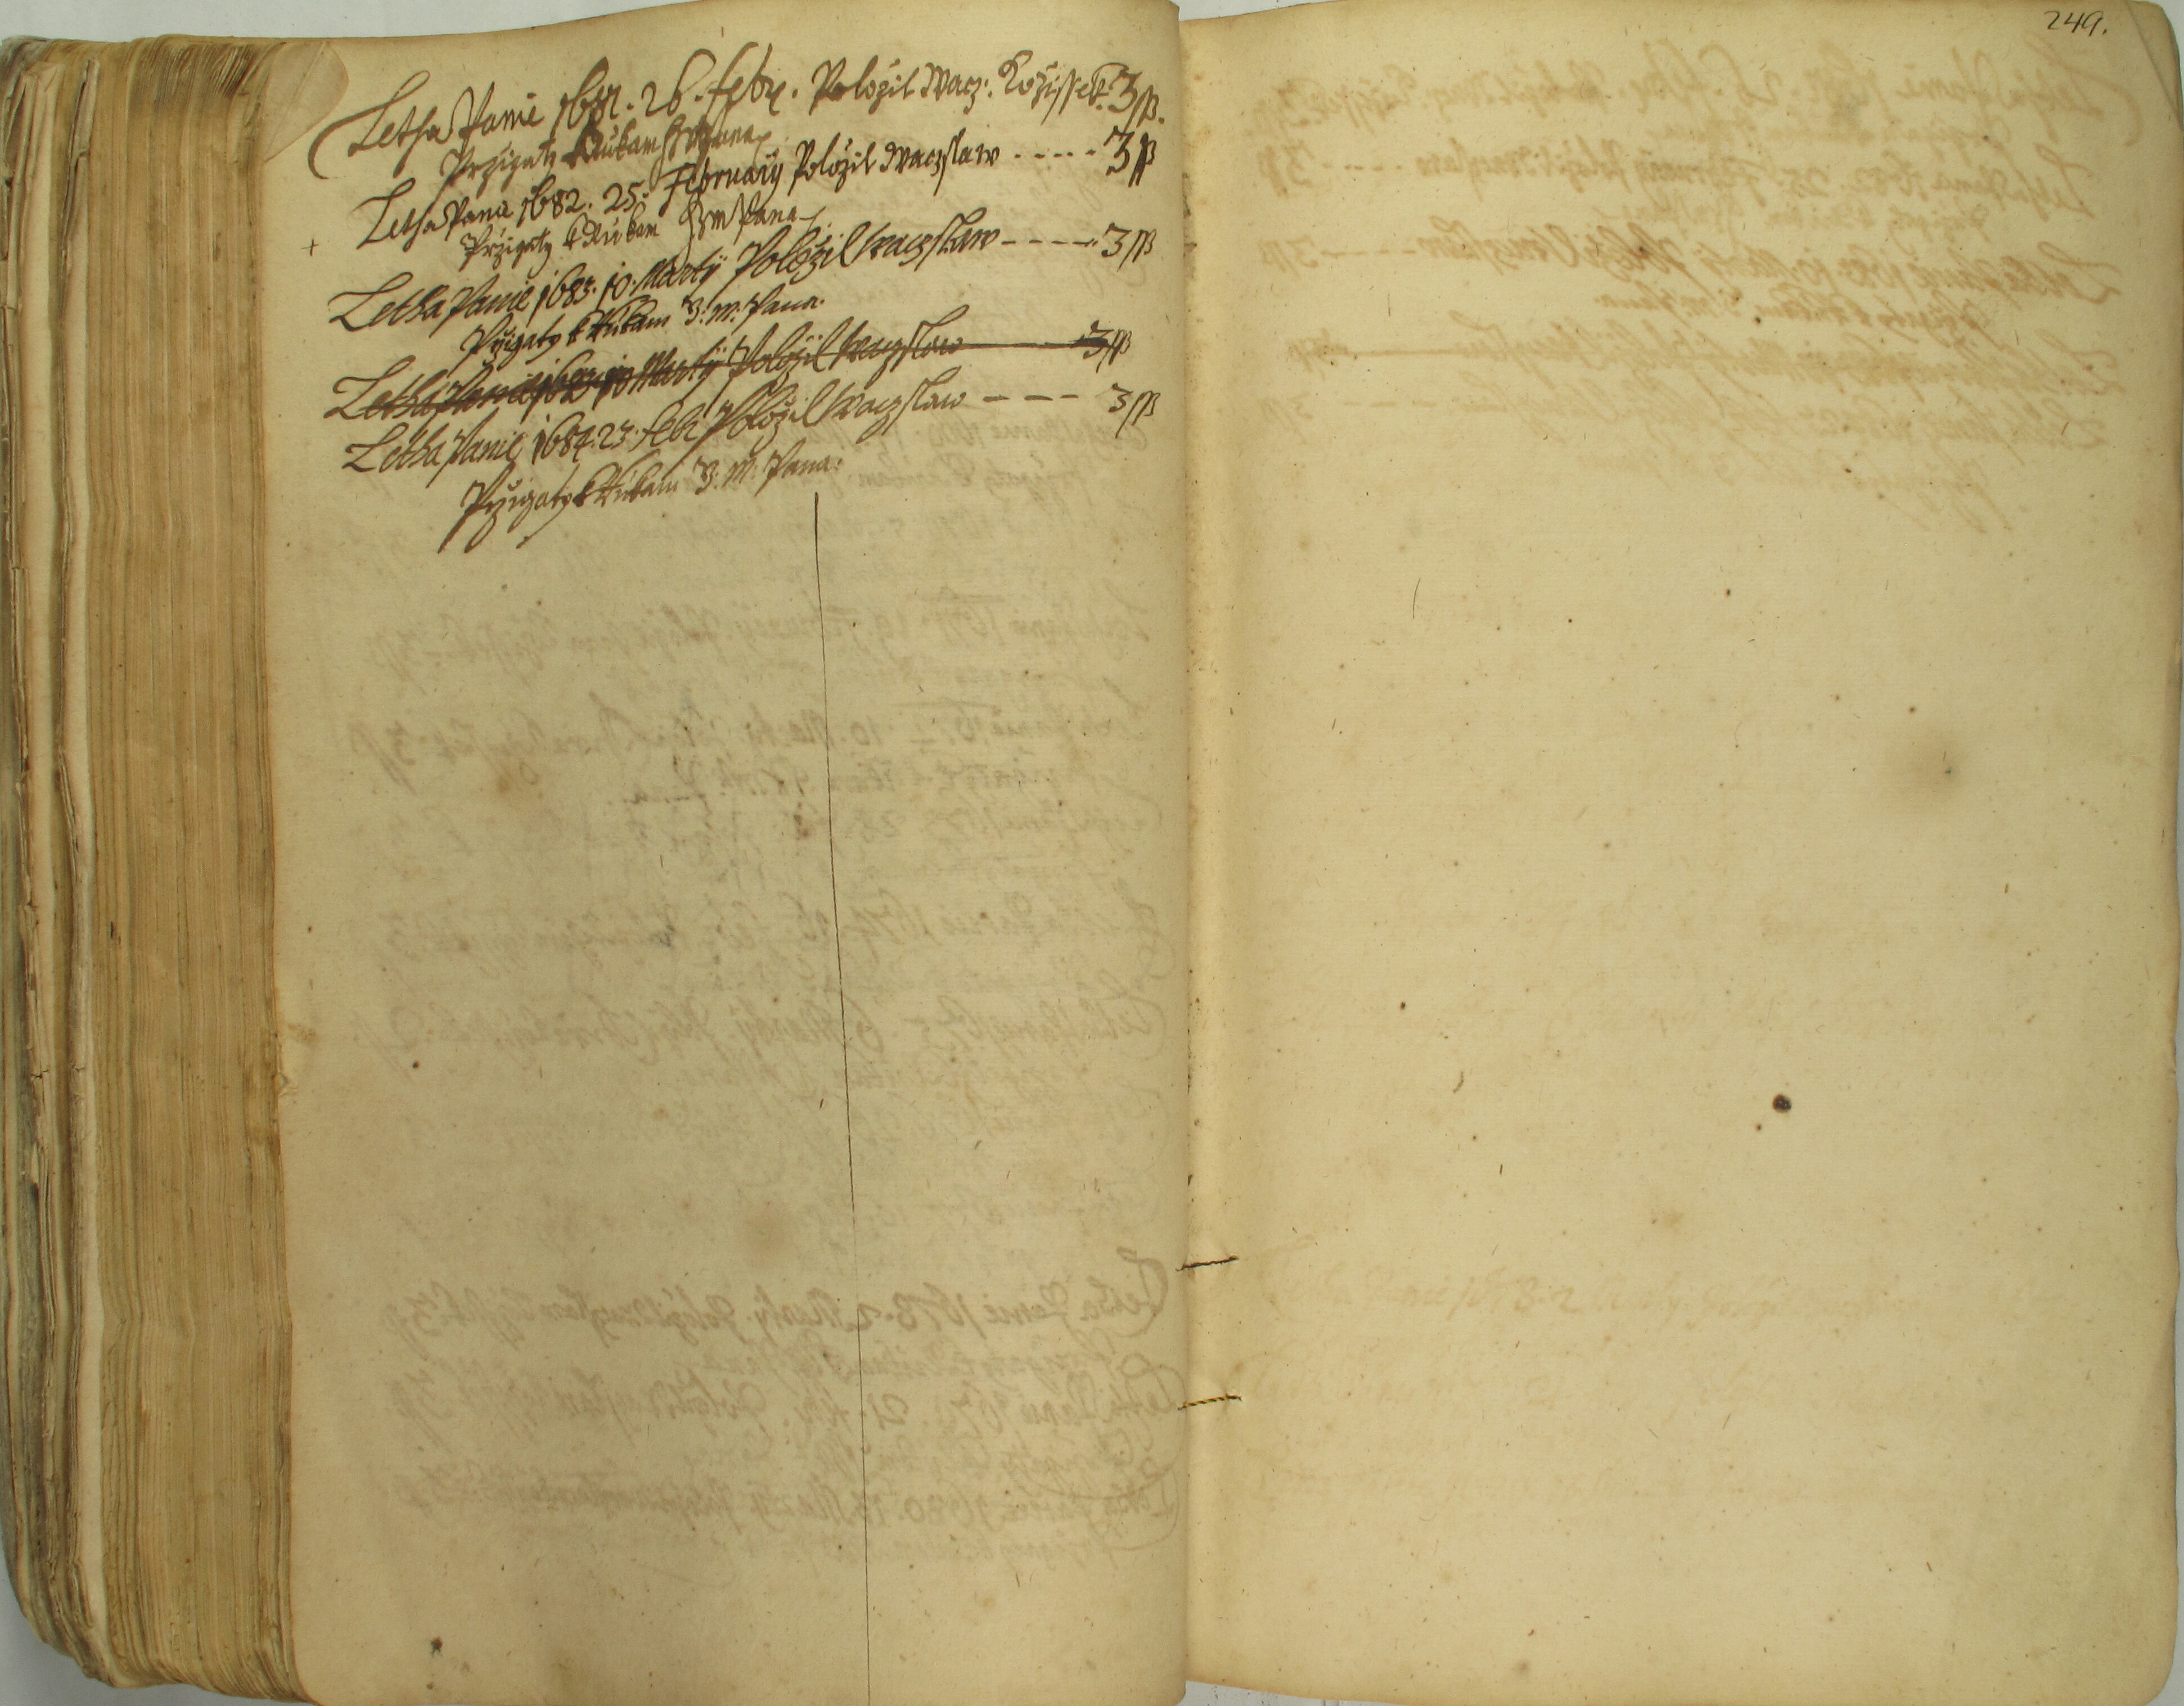 Letha Panie 1681. 26. febr. Položil Wacz: Kožissek. 3 ß.
Przigaty k Rukam Pana
Letha Panie 1682. 25. February Položil Waczslaw ----- 3 ß
+ Przigaty k Rukam Pana
Letha Panie 1683. 10. Marty Položil Waczslaw ----- 3 ß
Przigaty k Rukam J: M: Pana.
Letha Panie 1683 10 Marty Položil Waczslaw 3 ß
Letha Panie 1684. 23. feb Položil Waczslaw --- 3 ß
Przigaty k Rukam J: M: Pana:
249.